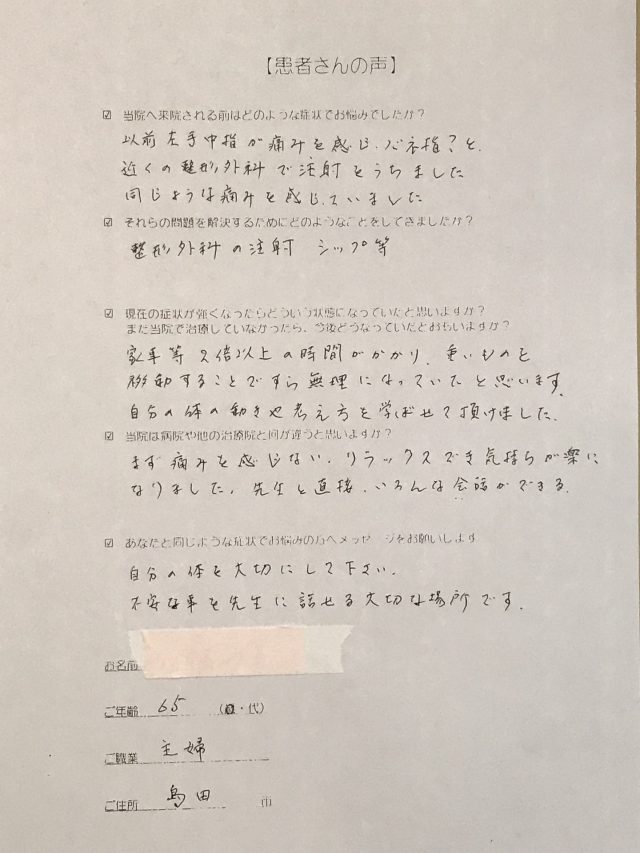 【患者さんの声】
☑ 当院へ来院される前はどのような症状でお悩みでしたか？
以前左手中指が痛みを感じ、バネ指？と、
近くの整形外科で注射をうちました
同じような痛みを感じていました
☑ それらの問題を解決するためにどのようなことをしてきましたか？
整形外科の注射 シップ等
☑ 現在の症状が強くなったらどういう状態になっていたと思いますか？
また当院で治療していなかったら、今後どうなっていたとおもいますか？
家事等2倍以上の時間がかかり、重いものを
移動することですら無理になっていたと思います。
自分の体の動きや考え方を学ばせて頂けました。
☑ 当院は病院や他の治療院と何が違うと思いますか？
まず痛みを感じない、リラックスでき気持ちが楽に
なりました。先生と直接、いろんな会話ができる。
☑ あなたと同じような症状でお悩みの方へメッセージをお願いします
自分の体を大切にして下さい。
不安な事を先生に話せる大切な場所です。
お名前
ご年齢 65 （歳・代）
ご職業 主婦
ご住所 島田 市